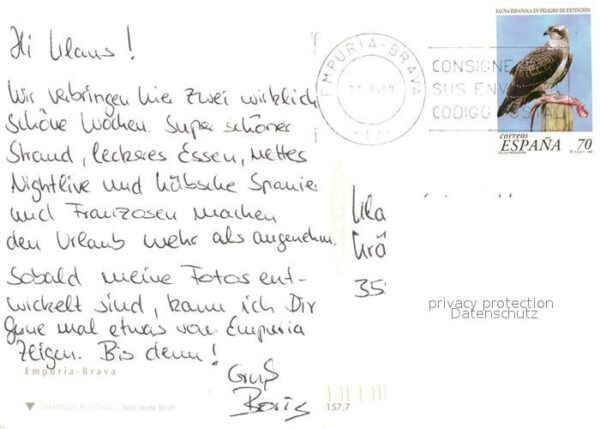 Hi Klaus!
Wir verbringen hier zwei wirklich
schöne Wochen. Super schöner
Strand, leckeres Essen, nettes
Nightlive und hübsche Spanier
und Franzosen machen
den Urlaub mehr als angenehm.
Sobald meine Fotos ent-
wickelt sind, kann ich Dir
gerne mal etwas von Empuria
zeigen. Bis denn!
Gruß
Boris
Empuria-Brava
TRIANGLE POSTALS
157.7
FAUNA ESPAÑOLA EN PELIGRO DE EXTINCION
correos
ESPAÑA 70
EMPURIA-BRAVA
CONSIGNE
SUS ENV
CODIGO POSTAL
Kla
35
privacy protection
Datenschutz